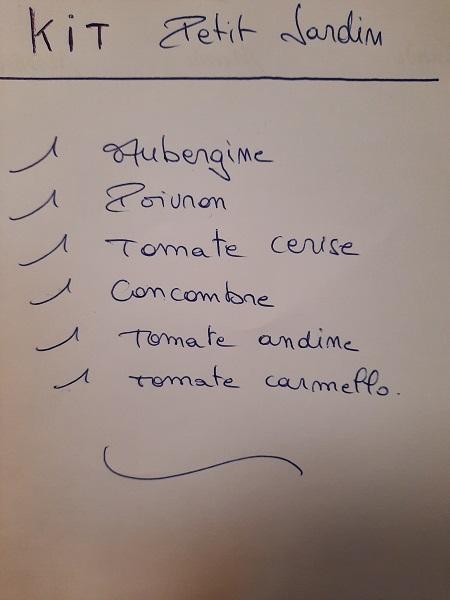 KiT Petit Jardin
1 Aubergine
1 Poivron
1 Tomate cerise
1 Concombre
1 Tomate andine
1 Tomate carmello.